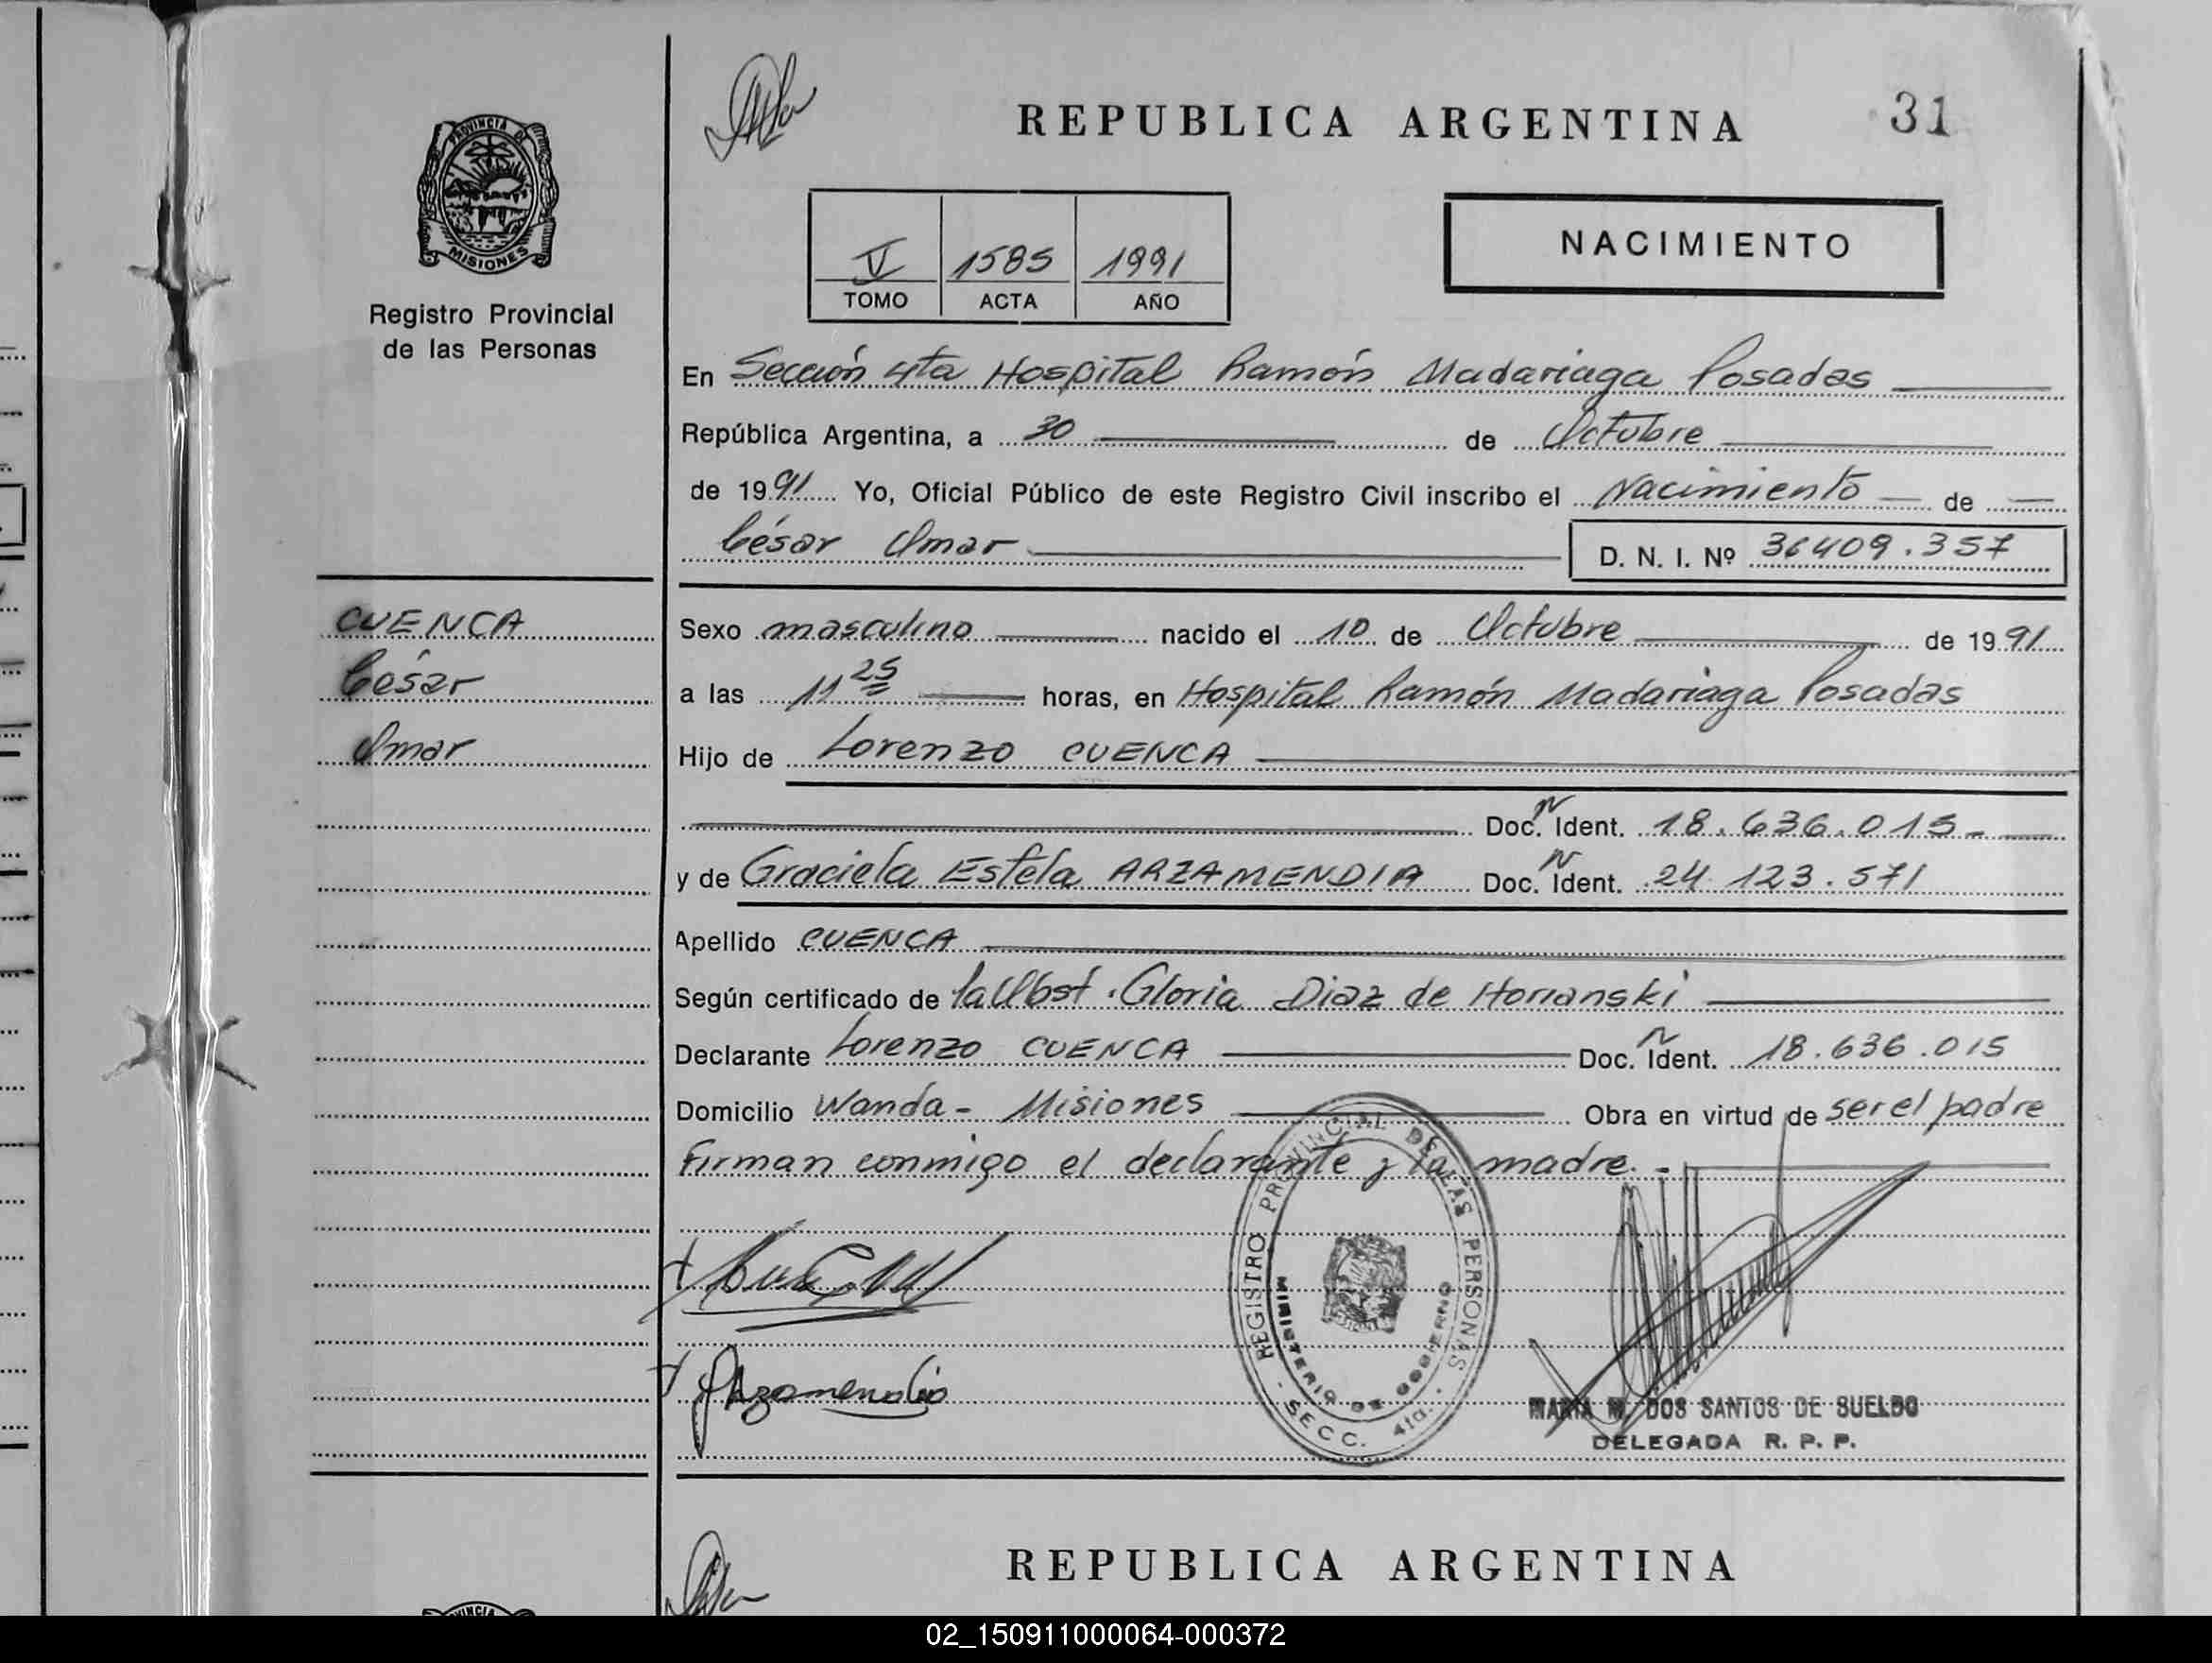 31
REPUBLICA ARGENTINA
PROVINCIA DE
MISIONES
Registro Provincial
de las Personas
V 1585 1991
TOMO ACTA AÑO
NACIMIENTO
En Sección 4ta Hospital Ramón Madariaga Posadas
República Argentina, a 30 de Octubre
de 1991 Yo, Oficial Público de este Registro Civil inscribo el Nacimiento de
César Omar D. N. I. Nº 36409.357
CUENCA
César
Omar
Sexo masculino nacido el 10 de Octubre de 1991
a las 11 25 horas, en Hospital Ramón Madariaga Posadas
Hijo de Lorenzo CUENCA
Doc. N Ident. 18.636.015-
y de Graciela Estela ARZAMENDIA Doc. N Ident. 24 123.571
Apellido CUENCA
Según certificado de la Obst. Gloria Diaz de Horianski
Declarante Lorenzo CUENCA Doc. N Ident. 18.636.015
Domicilio Wanda - Misiones Obra en virtud de ser el padre
Firman conmigo el declarante y la madre.-
REGISTRO PROVINCIAL DE LAS PERSONAS
MINISTERIO DE GOBIERNO
SECC. 4ta.
Arzamendia
MARIA M. DOS SANTOS DE SUELDO
DELEGADA R. P. P.
REPUBLICA ARGENTINA
VINCIA
02_150911000064-000372